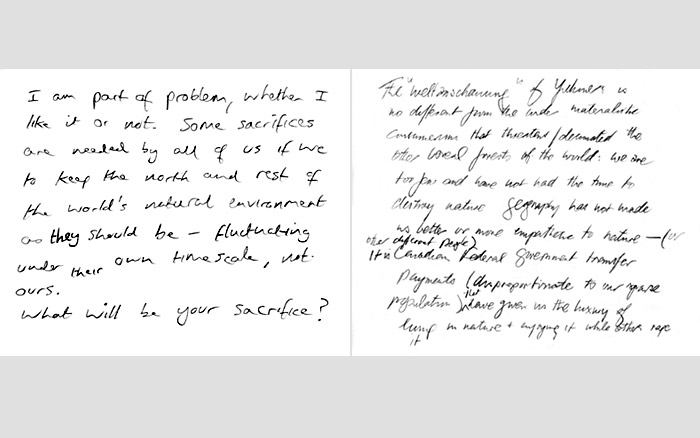 I am part of problem, whether I
like it or not. Some sacrifices
are needed by all of us if we
to keep the north and rest of
the world's natural environment
as they should be – fluctuating
under their own timescale, not
ours.
What will be your sacrifice?
The "weltanschauung" of Yukoners is
no different from the wider materialistic
consumerism that threatens/decimated the
other boreal forests of the world: we are
too few and have not had the time to
destroy nature geography has not made
us better or more empathetic to nature – (or
other different people)
It is Canadian Federal government transfer
payments (disproportionate to our sparse
population) that have given us the luxury of
living in nature + enjoying it while others rape
it